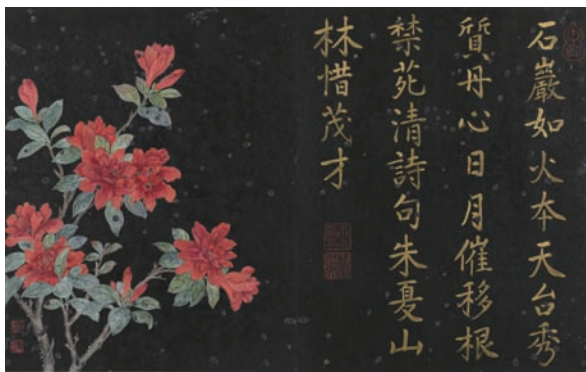 石巖如火本天台秀
質丹心日月催移根
禁苑清詩句朱夏山
林惜茂才